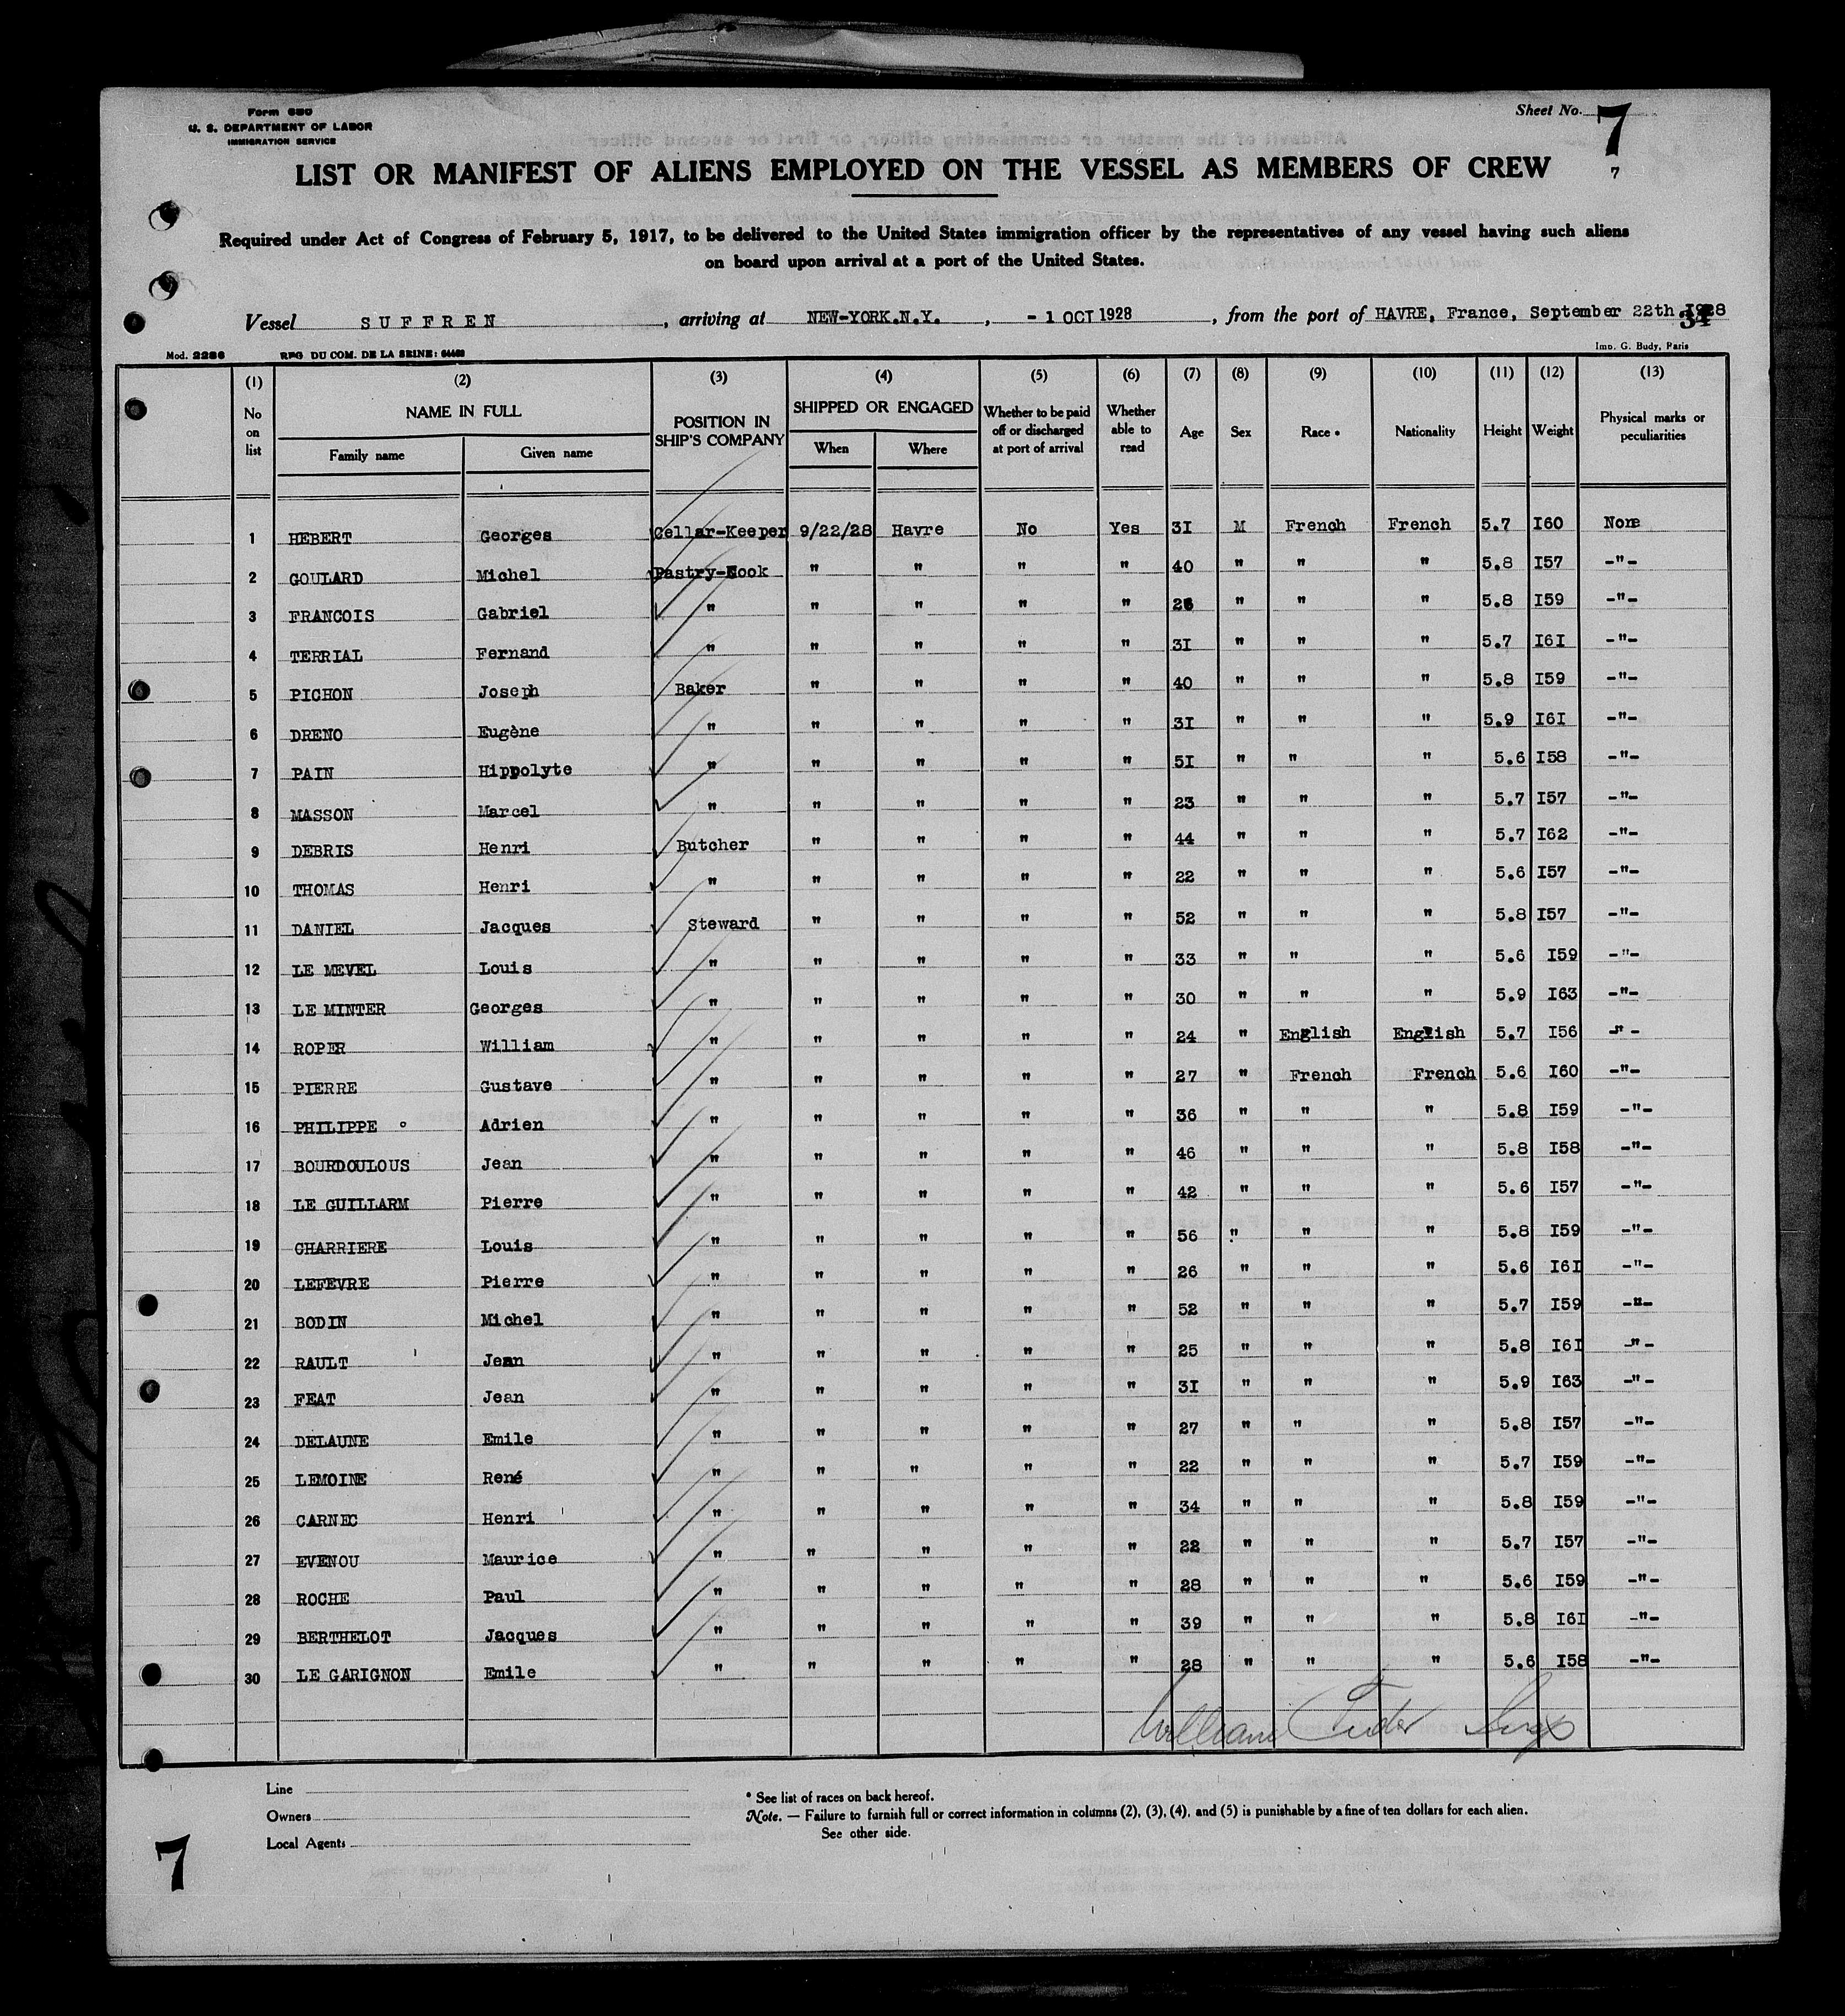 Form 680
U. S. DEPARTMENT OF LABOR
IMMIGRATION SERVICE
Sheet No. 7
7
LIST OR MANIFEST OF ALIENS EMPLOYED ON THE VESSEL AS MEMBERS OF CREW
Required under Act of Congress of February 5, 1917, to be delivered to the United States immigration officer by the representatives of any vessel having such aliens
on board upon arrival at a port of the United States.
Vessel SUFFREN, arriving at NEW-YORK.N.Y., - 1 OCT 1928, from the port of HAVRE, France, September 22th 1928
34
Mod. 2286 REG DU COM. DE LA SEINE: Imp. G. Budy, Paris
(1) (2) (3) (4) (5) (6) (7) (8) (9) (10) (11) (12) (13)
No on list NAME IN FULL Family name Given name POSITION IN SHIP'S COMPANY SHIPPED OR ENGAGED When Where Whether to be paid off or discharged at port of arrival Whether able to read Age Sex Race * Nationality Height Weight Physical marks or peculiarities
1 HEBERT Georges Cellar-Keeper 9/22/28 Havre No Yes 3I M French French 5.7 I60 None
2 GOULARD Michel Pastry-Cook " " " " 40 " " " 5.8 I57 -"-
3 FRANCOIS Gabriel " " " " " " " " 5.8 I59 -"-
4 TERRIAL Fernand " " " " " 3I " " " 5.7 I6I -"-
5 PICHON Joseph Baker " " " " 40 " " " 5.8 I59 -"-
6 DRENO Eugène " " " " " 3I " " " 5.9 I6I -"-
7 PAIN Hippolyte " " " " " 5I " " " 5.6 I58 -"-
8 MASSON Marcel " " " " " 23 " " " 5.7 I57 -"-
9 DEBRIS Henri Butcher " " " " 44 " " " 5.7 I62 -"-
10 THOMAS Henri " " " " " 22 " " " 5.6 I57 -"-
11 DANIEL Jacques Steward " " " " 52 " " " 5.8 I57 -"-
12 LE MEVEL Louis " " " " " 33 " " " 5.6 I59 -"-
13 LE MINTER Georges " " " " " 30 " " " 5.9 I63 -"-
14 ROPER William " " " " " 24 " English English 5.7 I56 -"-
15 PIERRE Gustave " " " " " 27 " French French 5.6 I60 -"-
16 PHILIPPE Adrien " " " " " 36 " " " 5.8 I59 -"-
17 BOURDOULOUS Jean " " " " " 46 " " " 5.8 I58 -"-
18 LE GUILLARM Pierre " " " " " 42 " " " 5.6 I57 -"-
19 CHARRIERE Louis " " " " " 56 " " " 5.8 I59 -"-
20 LEFEVRE Pierre " " " " " 26 " " " 5.6 I6I -"-
21 BODIN Michel " " " " " 52 " " " 5.7 I59 -"-
22 RAULT Jean " " " " " 25 " " " 5.8 I6I -"-
23 FEAT Jean " " " " " 3I " " " 5.9 I63 -"-
24 DELAUNE Emile " " " " " 27 " " " 5.8 I57 -"-
25 LEMOINE René " " " " " 22 " " " 5.7 I59 -"-
26 CARNEC Henri " " " " " 34 " " " 5.8 I59 -"-
27 EVENOU Maurice " " " " " 22 " " " 5.7 I57 -"-
28 ROCHE Paul " " " " " 28 " " " 5.6 I59 -"-
29 BERTHELOT Jacques " " " " " 39 " " " 5.8 I6I -"-
30 LE GARIGNON Emile " " " " " 28 " " " 5.6 I58 -"-
William Tudor
Line
Owners
Local Agents
* See list of races on back hereof.
Note. — Failure to furnish full or correct information in columns (2), (3), (4), and (5) is punishable by a fine of ten dollars for each alien.
See other side.
7